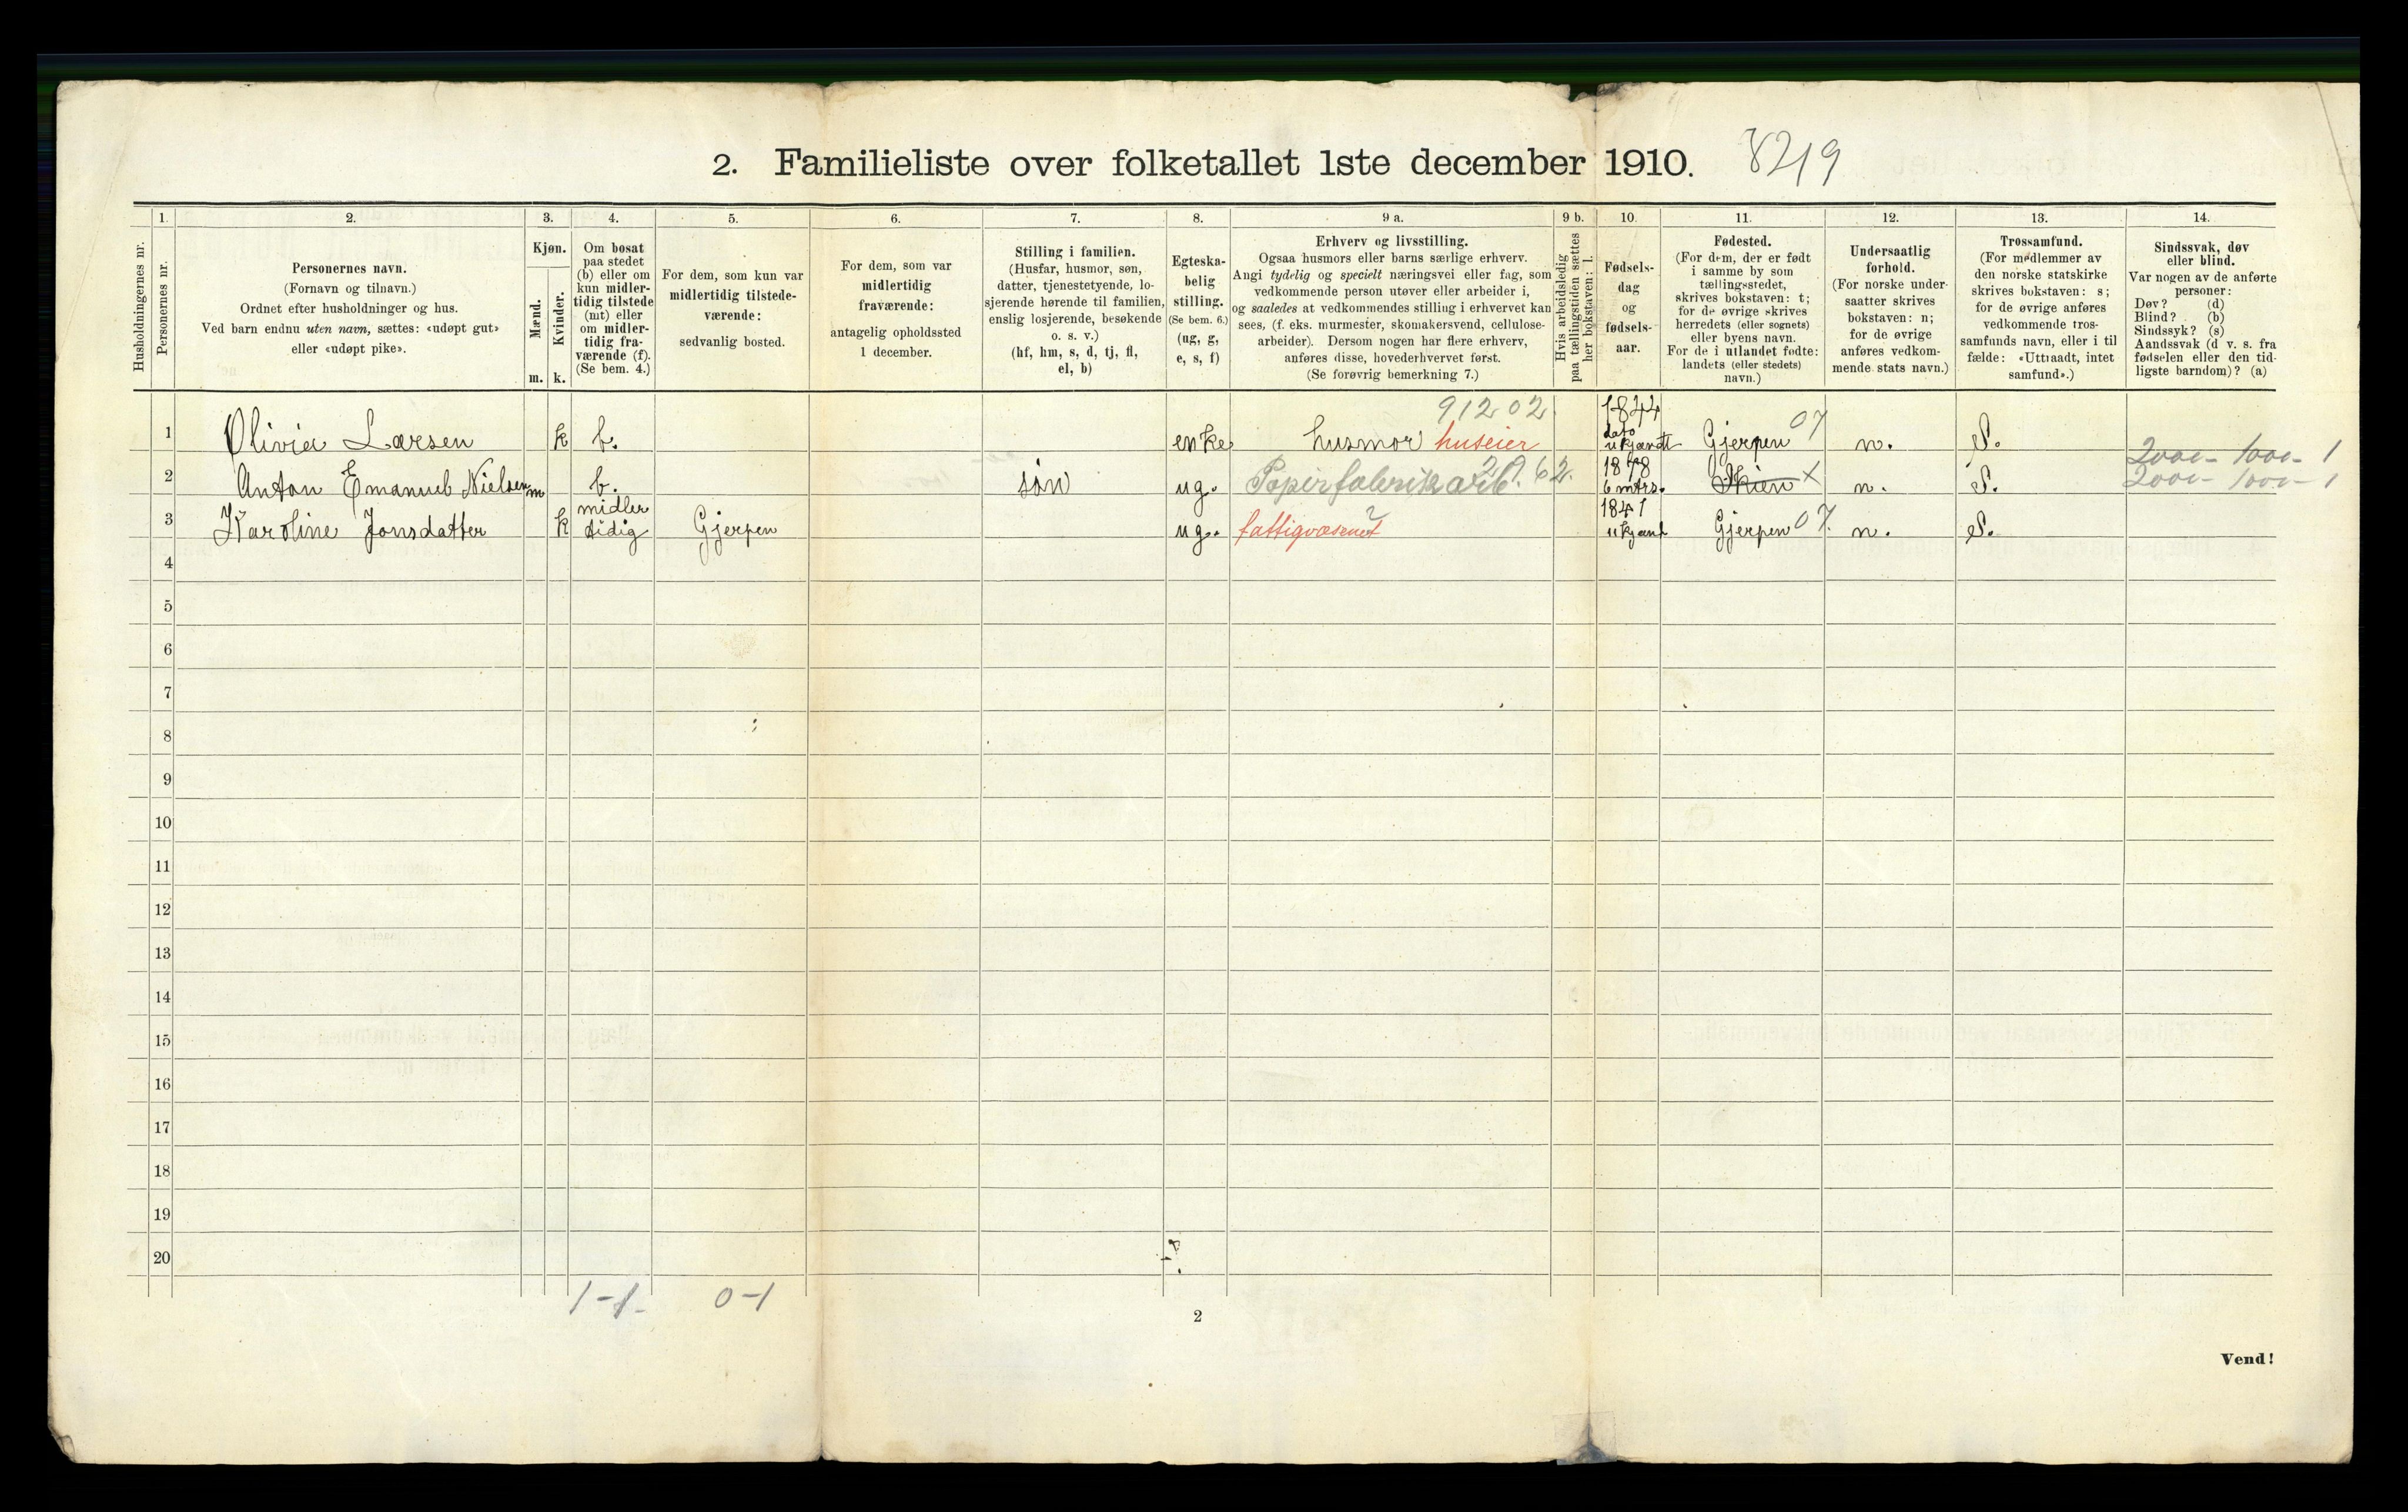 2. Familieliste over folketallet 1ste december 1910. 8219
1. 2. 3. 4. 5. 6. 7. 8. 9 a. 9 b. 10. 11. 12. 13. 14.
Husholdningernes nr.
Personernes nr.
Personernes navn.
(Fornavn og tilnavn.)
Ordnet efter husholdninger og hus.
Ved barn endnu uten navn, sættes: «udøpt gut»
eller «udøpt pike».
Kjøn.
Mænd.
Kvinder.
m. k.
Om bosat
paa stedet
(b) eller om
kun midler-
tidig tilstede
(mt) eller
om midler-
tidig fra-
værende (f).
(Se bem. 4.)
For dem, som kun var
midlertidig tilstede-
værende:
sedvanlig bosted.
For dem, som var
midlertidig
fraværende:
antagelig opholdssted
1 december.
Stilling i familien.
(Husfar, husmor, søn,
datter, tjenestetyende, lo-
sjerende hørende til familien,
enslig losjerende, besøkende
o. s. v.)
(hf, hm, s, d, tj, fl,
el, b)
Egteska-
belig
stilling.
(Se bem. 6.)
(ug, g,
e, s, f)
Erhverv og livsstilling.
Ogsaa husmors eller barns særlige erhverv.
Angi tydelig og specielt næringsvei eller fag, som
vedkommende person utøver eller arbeider i,
og saaledes at vedkommendes stilling i erhvervet kan
sees, (f. eks. murmester, skomakersvend, cellulose-
arbeider). Dersom nogen har flere erhverv,
anføres disse, hovederhvervet først.
(Se forøvrig bemerkning 7.)
Hvis arbeidsledig
paa tællingstiden sættes
her bokstaven: l.
Fødsels-
dag
og
fødsels-
aar.
Fødested.
(For dem, der er født
i samme by som
tællingsstedet,
skrives bokstaven: t;
for de øvrige skrives
herredets (eller sognets)
eller byens navn.
For de i utlandet fødte:
landets (eller stedets)
navn.)
Undersaatlig
forhold.
(For norske under-
saatter skrives
bokstaven: n;
for de øvrige
anføres vedkom-
mende stats navn.)
Trossamfund.
(For medlemmer av
den norske statskirke
skrives bokstaven: s;
for de øvrige anføres
vedkommende tros-
samfunds navn, eller i til
fælde: «Uttraadt, intet
samfund».)
Sindssvak, døv
eller blind.
Var nogen av de anførte
personer:
Døv? (d)
Blind? (b)
Sindssyk? (s)
Aandssvak (d v. s. fra
fødselen eller den tid-
ligste barndom)? (a)
91202 1844
1 Olivia Larsen k b. enke husmor huseier dato ukjendt Gjerpen 07 n. S.
2000- 1000- 1
2 Anton Emanuel Nielsen m b. søn ug. Papirfabrikarb. 1878 6 mtrs. Skien x n. S. 2000- 1000- 1
midler 1841
3 Karoline Jonsdatter k tidig Gjerpen ug. fattigvæsenet ukjent Gjerpen 07. n. S.
4
5
6
7
8
9
10
11
12
13
14
15
16
17
18
19
20
1-1- 0-1
2
Vend!